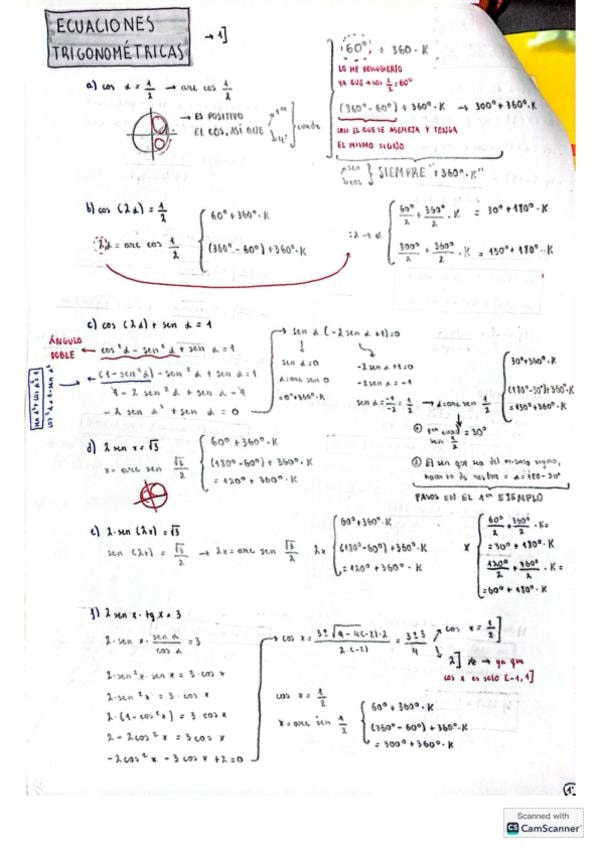 ECUACIONES
TRIGONOMÉTRICAS
→ 1]
a) cos α = 1/2 → arc cos 1/2
→ ES POSITIVO
EL COS, ASÍ QUE
cuadr
60° + 360·K
LO HE DESCUBIERTO
YA QUE cos 1/2 = 60°
(360°-60°) + 360°·K → 300° + 360°·K
CON EL QUE SE ASEMEJA Y TENGA
EL MISMO SIGNO
sen
cos } SIEMPRE "+360°·K"
b) cos (2α) = 1/2
2α = arc cos 1/2
60° + 360°·K
(360°-60°) + 360°·K
:2 → α
60°/2 + 360°/2 · K = 30° + 180°·K
300°/2 + 360°/2 · K = 150° + 180°·K
c) cos (2α) + sen α = 1
ÁNGULO
DOBLE
← cos²α - sen²α + sen α = 1
(1-sen²α) - sen²α + sen α = 1
1 - 2 sen²α + sen α - 1
-2 sen α² + sen α = 0
sen α² + cos α² = 1
cos²α = 1 - sen α²
→ sen α (-2 sen α +1)=0
sen α = 0
α = arc sen 0
= 0° + 360°·K
-2 sen α + 1 = 0
-2 sen α = -1
sen α = -1/-2 = 1/2 → α = arc sen 1/2
30° + 360°·K
(180°-30°) + 360°·K
= 150° + 360°·K
① 1er cuad = 30°
sen 1/2
② El sen que sea del mismo signo,
α = 180-30°
PASOS EN EL 1er EJEMPLO
d) 2 sen x = √3
x = arc sen √3/2
60° + 360°·K
(180°-60°) + 360°·K
= 120° + 360°·K
e) 2·sen (2x) = √3
sen (2x) = √3/2 → 2x = arc sen √3/2
2x
60° + 360°·K
(180°-60°) + 360°·K
= 120° + 360°·K
x
60°/2 + 360°/2 · K =
= 30° + 180°·K
120°/2 + 360°/2 · K =
= 60° + 180°·K
f) 2 sen x · tg x = 3
2·sen x · sen α/cos α = 3
2·sen²x · sen x = 3·cos x
2·sen²x = 3·cos x
2·(1-cos²x) = 3 cos x
2 - 2cos²x = 3 cos x
-2cos²x - 3 cos x + 2 = 0
→ cos x = 3±√(9-4(-2)·2)/2·(-2) = 3±5/4
cos x = 1/2]
2] No → ya que
cos x es solo [-1,1]
cos x = 1/2
x = arc sen 1/2
60° + 360°·K
(360°-60°) + 360°·K
= 300° + 360°·K
Scanned with
CS CamScanner